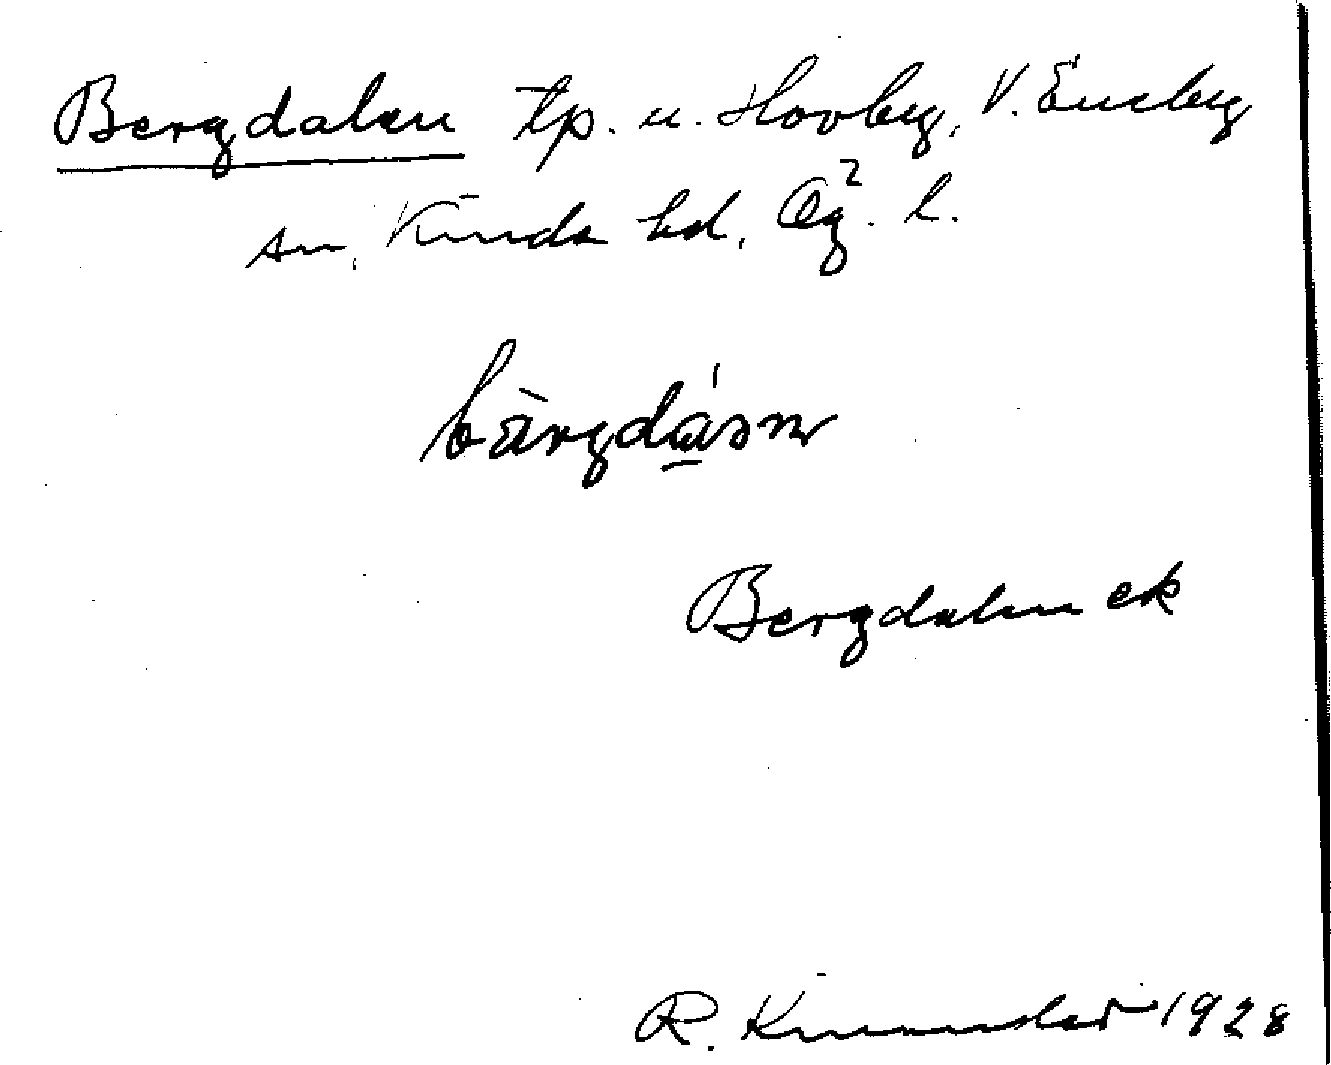 Bergdalen tp. u. Hovby, V. Eneby
sn, Kinda hd, Ög. l.
bärgdásn
Bergdalen ek
R. 1928